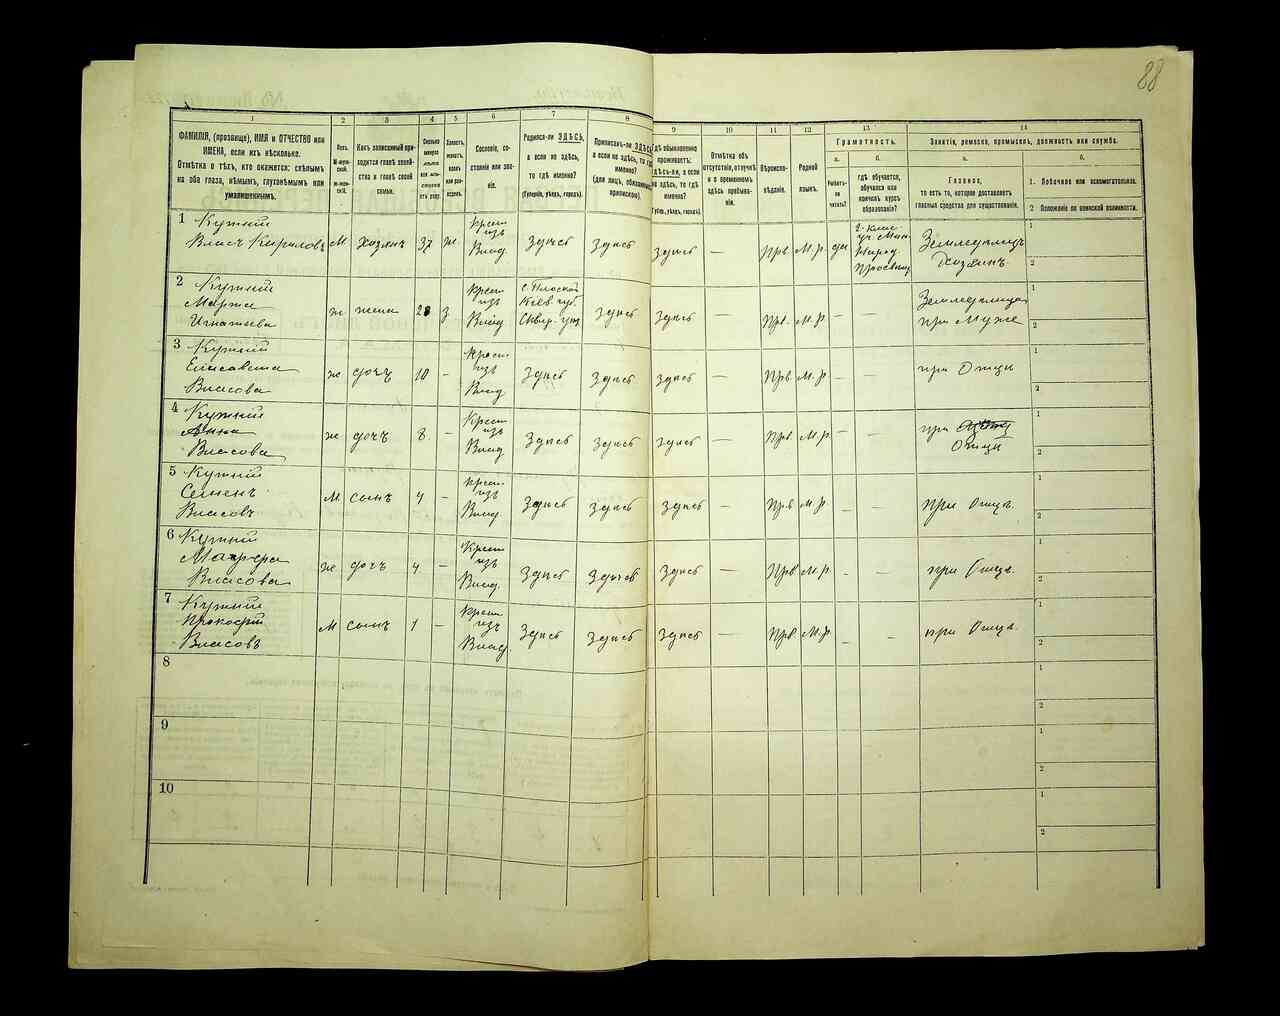 88
1 2 3 4 5 6 7 8 9 10 11 12 13 14
ФАМИЛІЯ, (прозвище), ИМЯ и ОТЧЕСТВО или
ИМЕНА, если ихъ нѣсколько.
Отмѣтка о тѣхъ, кто окажется: слѣпымъ
на оба глаза, нѣмымъ, глухонѣмымъ или
умалишеннымъ.
Полъ.
М-муж-
скій.
Ж-жен-
скій.
Какъ записанный при-
ходится главѣ хозяй-
ства и главѣ своей
семьи.
Сколько
минуло
лѣтъ
или мѣ-
сяцевъ
отъ роду.
Холостъ,
женатъ,
вдовъ
или раз-
веденъ.
Сословіе, со-
стояніе или зва-
ніе.
Родился-ли ЗДѢСЬ,
а если не здѣсь,
то гдѣ именно?
(Губернія, уѣздъ, городъ).
Приписанъ-ли ЗДѢСЬ,
а если не здѣсь, то гдѣ
именно?
(для лицъ, обязанныхъ
припискою).
Гдѣ обыкновенно
проживаетъ:
здѣсь-ли, а если
не здѣсь, то гдѣ
именно?
(Губ., уѣздъ, городъ).
Отмѣтка объ
отсутствіи, отлучкѣ
и о временномъ
здѣсь пребыва-
ніи.
Вѣроиспо-
вѣданіе.
Родной
языкъ.
Грамотность.
а.
Умѣетъ-
ли
читать?
б.
гдѣ обучается,
обучался или
кончилъ курсъ
образованія?
Занятіе, ремесло, промыселъ, должность или служба.
а.
Главное,
то есть то, которое доставляетъ
главныя средства для существованія.
б.
1. Побочное или вспомогательное.
2 Положеніе по воинской повинности.
1 Кужній
Власъ Кириловъ М хозяинъ 37 ж. Крест. изъ Влад. Здѣсь Здѣсь здѣсь — Прв. М.р. да 2-клас. уч. Мин. Народ. Просвѣщ. Земледѣлецъ Хозяинъ.
1
2
2 Кужній
Марія
Игнатьева ж жена 28 з Крест. изъ Влад. с. Плоской Кіев. губ. Сквир. уѣз. здѣсь здѣсь — Прв. М.р. — — Земледѣлица при Мужѣ
1
2
3 Кужній
Елисавета
Власова ж дочь 10 — Крест. изъ Влад. Здѣсь Здѣсь здѣсь — Прв. М.р. — — при Отцѣ
1
2
4 Кужній
Анна
Власова ж дочь 8 — Крест. изъ Влад. Здѣсь Здѣсь здѣсь — Прв. М.р. — — при Отцѣ
1
2
5 Кужній
Семенъ
Власовъ М сынъ 4 — Крест. изъ Влад. Здѣсь Здѣсь Здѣсь — Прв М.р. — — при Отцѣ.
1
2
6 Кужній
Власова ж дочь 4 — Крест. изъ Влад. Здѣсь Здѣсь Здѣсь — Прв М.р. — — при Отцѣ.
1
2
7 Кужній
Прокофій
Власовъ М сынъ 1 — Крест. изъ Влад. Здѣсь Здѣсь Здѣсь — Прв. М.р. — — при Отцѣ.
1
2
8
1
2
9
1
2
10
1
2